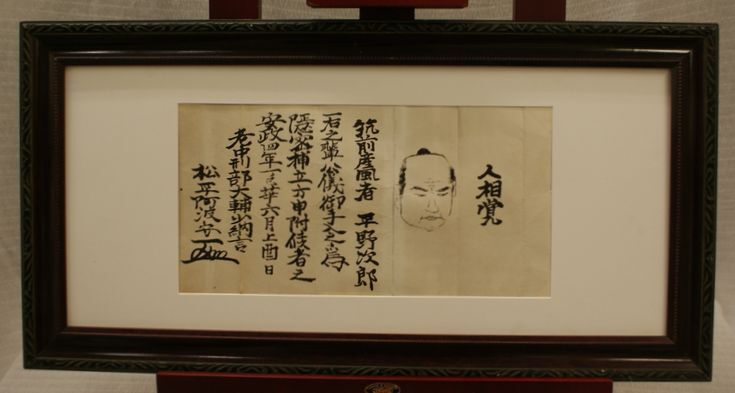 人相覚
筑前産風者 平野次郎
右之輩公儀御手合之為
隠密捕立方申附候者之
安政四年 六月上酉日
老中刑部大輔少納言
松平阿波守